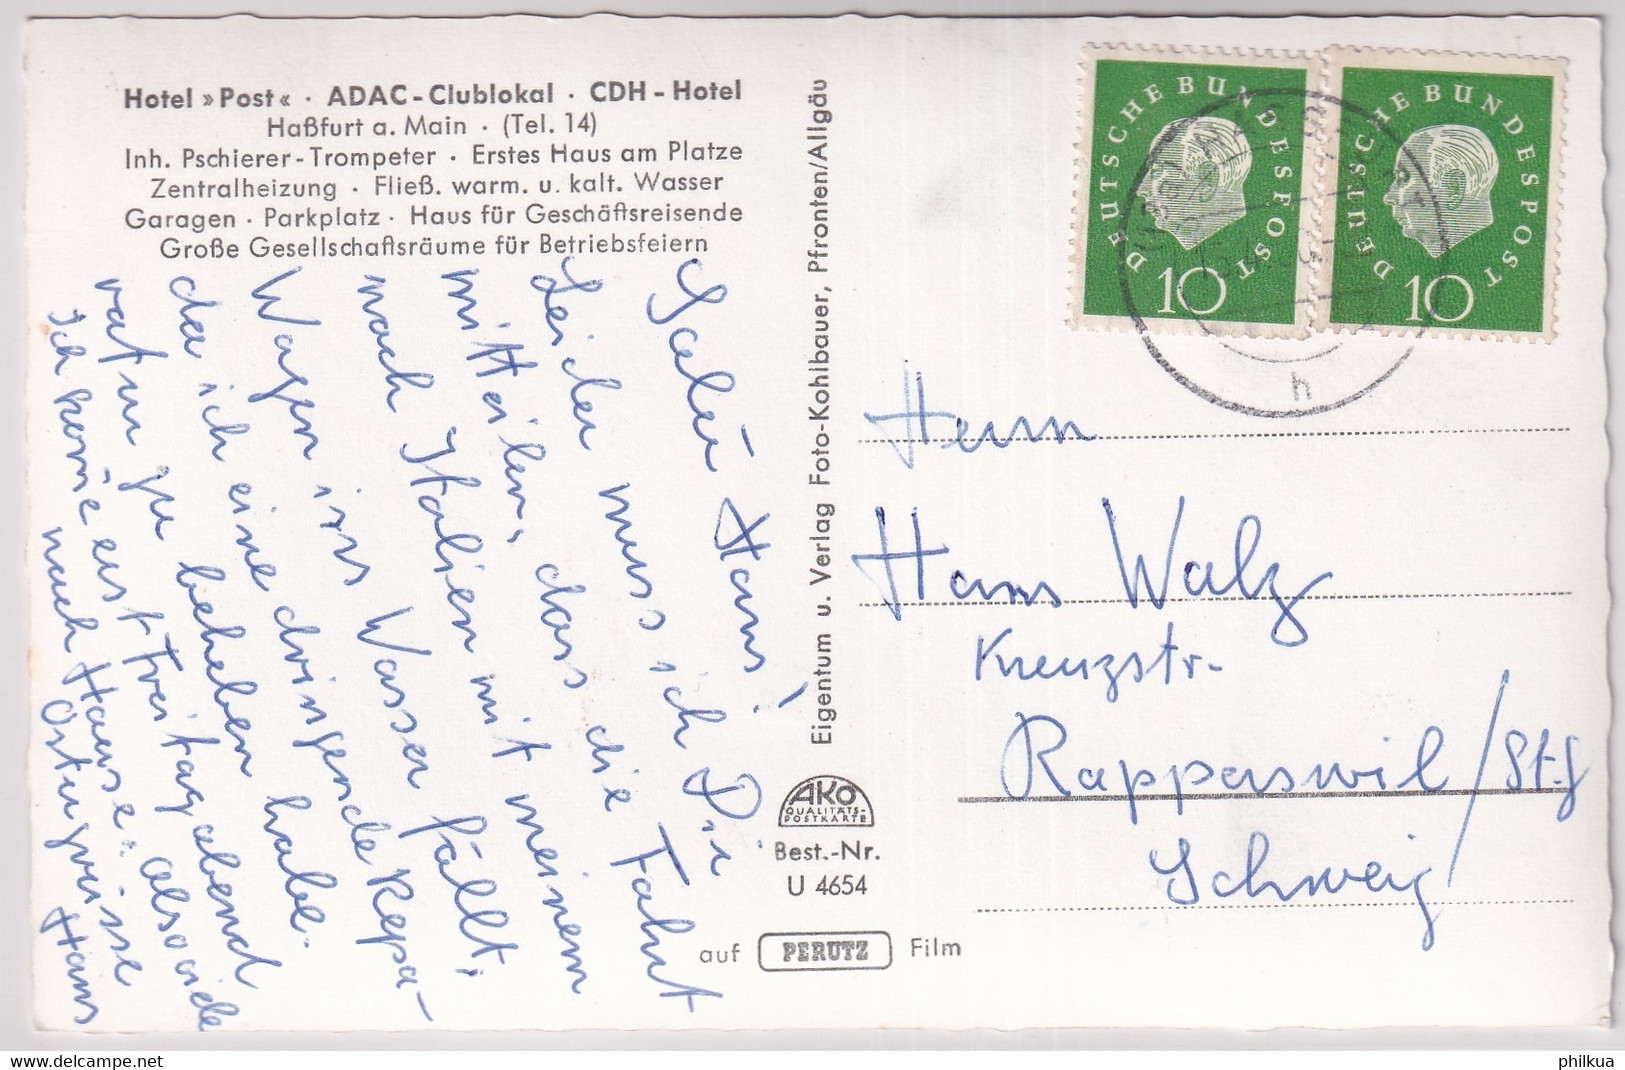 Hotel »Post« · ADAC-Clublokal · CDH-Hotel
Haßfurt a. Main · (Tel. 14)
Inh. Pschierer-Trompeter · Erstes Haus am Platze
Zentralheizung · Fließ. warm. u. kalt. Wasser
Garagen · Parkplatz · Haus für Geschäftsreisende
Große Gesellschaftsräume für Betriebsfeiern
Salü Hans!
Leider muss ich Dir
mitteilen, dass die Fahrt
nach Italien mit meinem
Wagen ins Wasser fällt,
da ich eine dringende Repa-
ratur zu beheben habe.
Ich kom̄e erst Freitagabend
nach Hause. Also viele
Ostergrüsse
Hans
Eigentum u. Verlag Foto-Kohlbauer, Pfronten/Allgäu
AKO
QUALITÄTS-
POSTKARTE
Best.-Nr.
U 4654
auf PERUTZ Film
DEUTSCHE BUNDESPOST
10
DEUTSCHE BUNDESPOST
10
h
Herrn
Hans Walz
Kreuzstr.
Rapperswil/St.G
Schweiz
delcampe.net
philkua